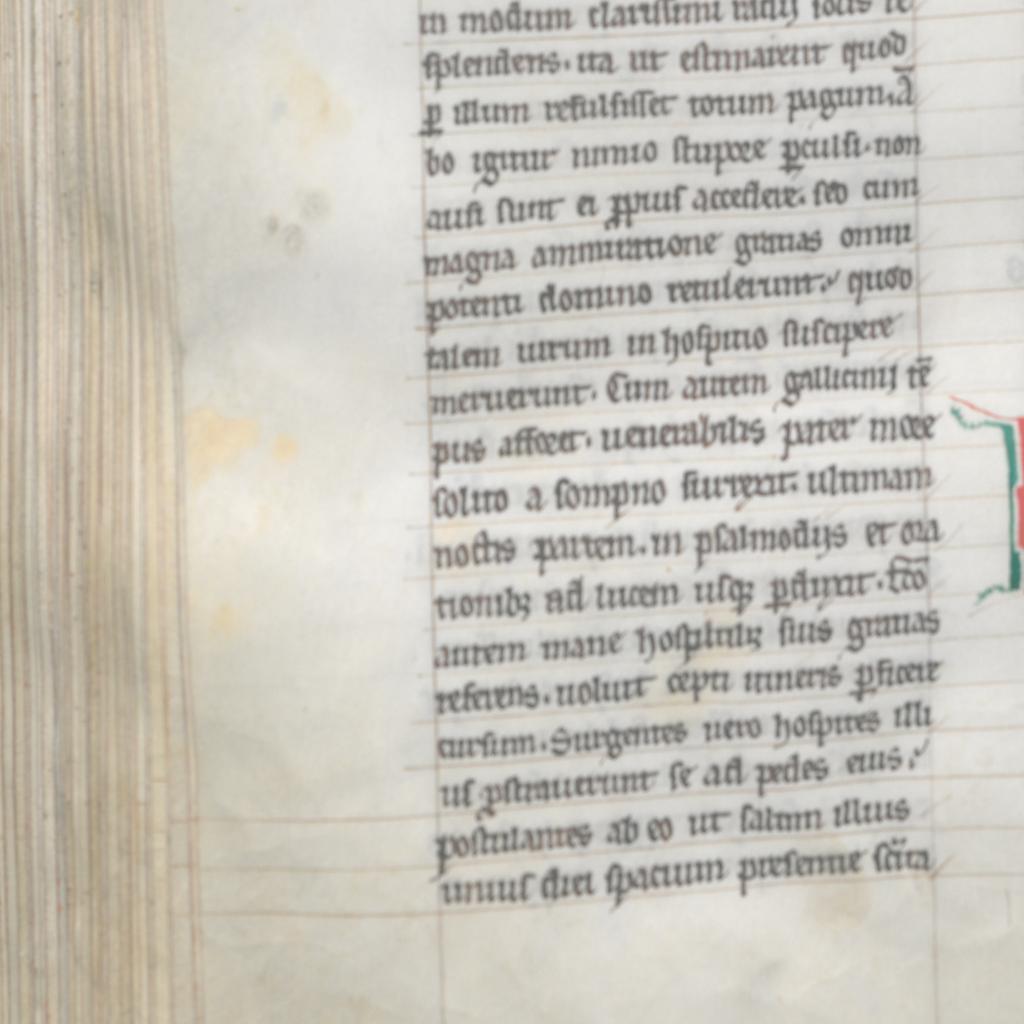 in modum clarissimi radij solis re
splendens. ita ut estimarent quod
ꝑ illum refulsisset totum pagum. A̅
bo igitur nimio stupore ꝑculsi. non
ausi sunt ei ꝓpius accedere. sed cum
magna ammiratione gratias omni
potenti domino retulerunt. quod
talem uirum in hospitio suscipere
meruerunt. Cum autem gallicinij te̅
pus afforet. uenerabilis pater more
solito a sompno surrexit. ultimam
noctis partem. in psalmodijs et ora
tionibꝫ ad lucem usqꝫ ꝑduxit. fc̅o
autem mane hospitibꝫ suis gratias
referens. uoluit cepti itineris ꝑficere
cursum. Surgentes uero hospites illi
us ꝓstrauerunt se ad pedes eius.
postulantes ab eo ut saltim illius
unius diei spacium presentie sc̅ita